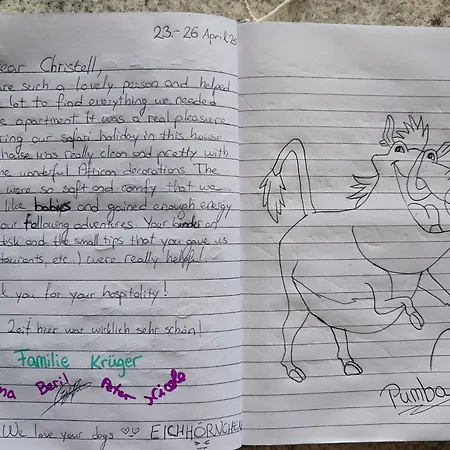 23.-26 April 25
ear Christell,
are such a lovely person and helped
lot to find everything we needed
e apartment. It was a real pleasure
ring our safari holiday in this house
house was really clean and pretty with
e wonderful African decorations. The
were so soft and comfy that we
like babies and gained enough energy
our following adventures. Your on
disk and the small tips that you gave us
taurants, etc..) were really helpful
k you for your hospitality!
Zeit hier war wirklich sehr schön!
Familie Krüger
na Beril Peter Nicole
We love your dogs ♡♡ EICHHÖRNCHEN
Pumba